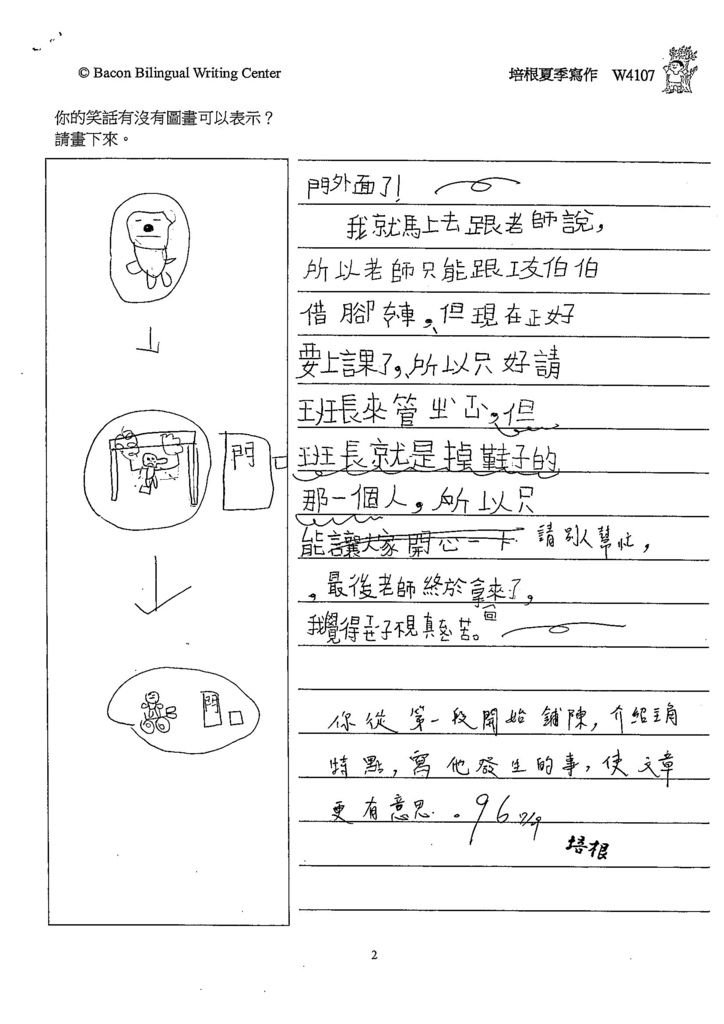 © Bacon Bilingual Writing Center
培根夏季寫作 W4107
你的笑話有沒有圖畫可以表示？
請畫下來。
門
門
門外面了！
我就馬上去跟老師說，
所以老師只能跟工友伯伯
借腳車，但現在正好
要上課了，所以只好請
班長來管，但
班長就是掉鞋子的
那一個人，所以只
能讓大家開心一下請別人幫忙，
，最後老師終於拿回來了，
我覺得真苦。
你從第一段開始鋪陳，介紹主角
特點，寫他發生的事，使文章
更有意思。96 7/9
培根
2